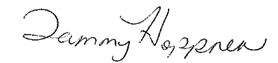 Tammy Hoppner